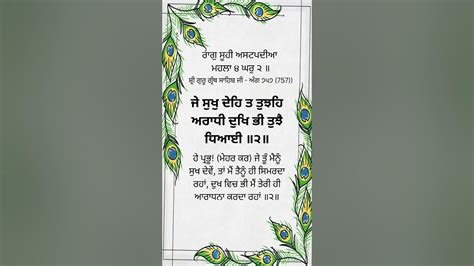 ਰਾਗੁ ਸੂਹੀ ਅਸਟਪਦੀਆ
ਮਹਲਾ ੪ ਘਰੁ ੨ ॥
ਸ਼੍ਰੀ ਗੁਰੂ ਗ੍ਰੰਥ ਸਾਹਿਬ ਜੀ - ਅੰਗ ੭੫੭ (757))
ਜੇ ਸੁਖੁ ਦੇਹਿ ਤ ਤੁਝਹਿ
ਅਰਾਧੀ ਦੁਖਿ ਭੀ ਤੁਝੈ
ਧਿਆਈ ॥੨॥
ਹੇ ਪ੍ਰਭੂ! (ਮੇਹਰ ਕਰ) ਜੇ ਤੂੰ ਮੈਨੂੰ
ਸੁਖ ਦੇਵੇਂ, ਤਾਂ ਮੈਂ ਤੈਨੂੰ ਹੀ ਸਿਮਰਦਾ
ਰਹਾਂ, ਦੁਖ ਵਿਚ ਭੀ ਮੈਂ ਤੇਰੀ ਹੀ
ਆਰਾਧਨਾ ਕਰਦਾ ਰਹਾਂ ॥੨॥